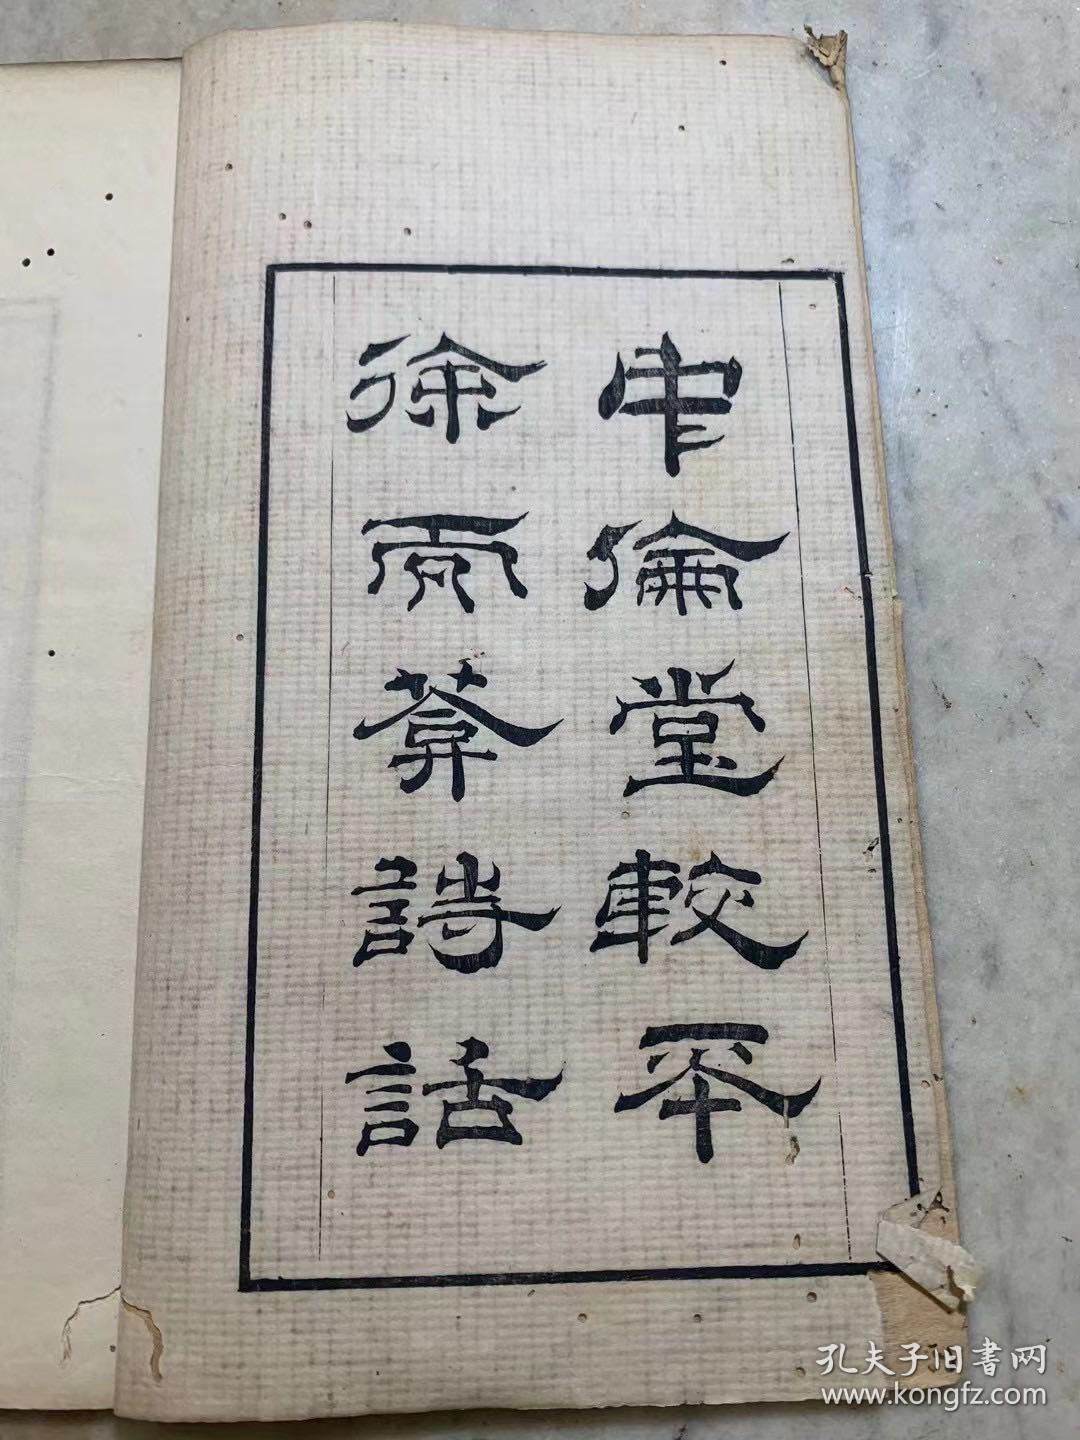 中倫堂較本
徐而菴詩話
孔夫子旧書网
www.kongfz.com